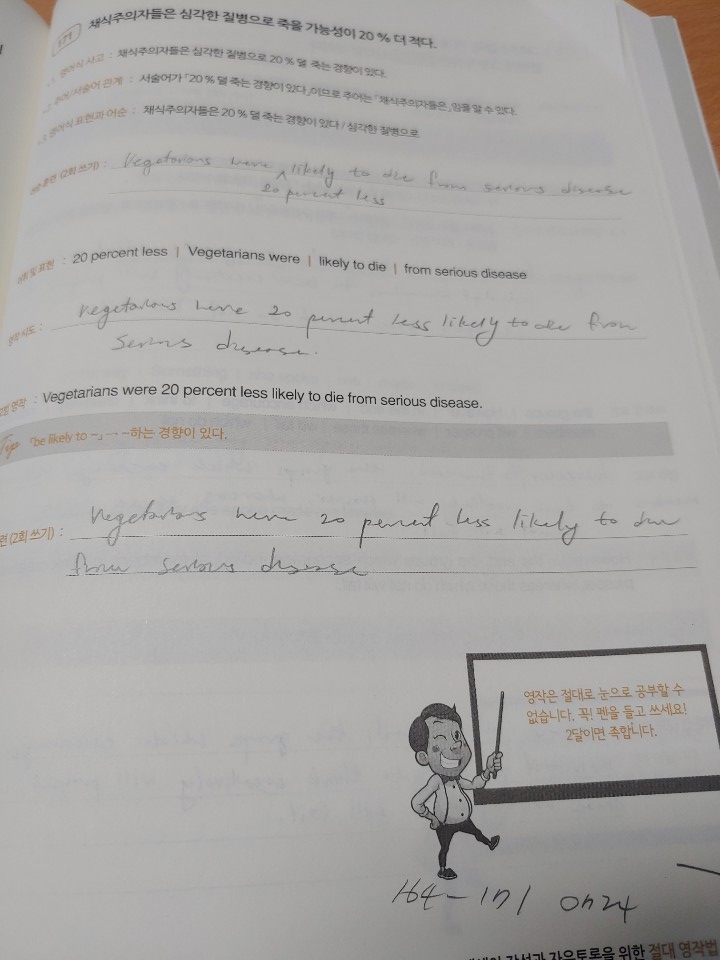 171 채식주의자들은 심각한 질병으로 죽을 가능성이 20 % 더 적다.
1. 영어식 사고 : 채식주의자들은 심각한 질병으로 20 % 덜 죽는 경향이 있다.
2. 주어/서술어 관계 : 서술어가 「20 % 덜 죽는 경향이 있다」이므로 주어는 「채식주의자들은」임을 알 수 있다.
3. 영어식 표현과 어순 : 채식주의자들은 20 % 덜 죽는 경향이 있다 / 심각한 질병으로
훈련 (2회 쓰기) : Vegetarians were likely to die from serious disease
20 percent less
및 표현 : 20 percent less | Vegetarians were | likely to die | from serious disease
영작 시도 : Vegetarians were 20 percent less likely to die from
serious disease.
영작 : Vegetarians were 20 percent less likely to die from serious disease.
Tip 「be likely to ~」 → ~하는 경향이 있다.
련 (2회 쓰기) : Vegetarians were 20 percent less likely to die
from serious disease
영작은 절대로 눈으로 공부할 수
없습니다. 꼭! 펜을 들고 쓰세요!
2달이면 족합니다.
164-171 0424
을 위한 절대 영작법